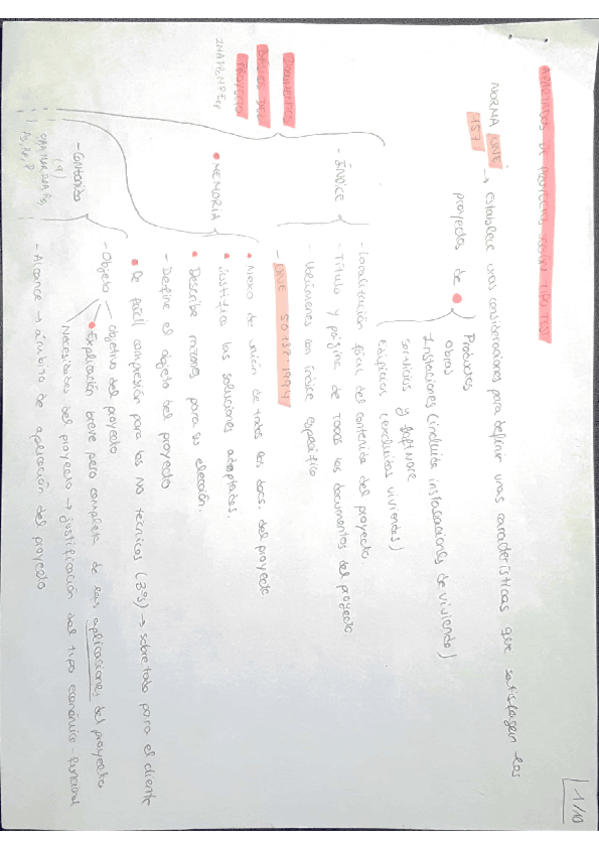 1/10
APARTADOS DE PROYECTOS SEGÚN TIPO TEST
NORMA UNE 157 → establece unas consideraciones para definir unas características que satisfagan los
proyectos de
Productos
Obras
Instalaciones (incluida instalaciones de vivienda)
Servicios y software
Edificios (excluidas viviendas)
DOCUMENTOS
BÁSICOS DEL
PROYECTO
- ÍNDICE
- Localización fácil del contenido del proyecto
- Título y página de todos los documentos del proyecto.
- Volúmenes con índice específico
- UNE 50132-1994
MEMORIA
Nexo de unión de todos los docs. del proyecto
Justifica las soluciones adoptadas.
Describe razones para su elección.
- Define el objeto del proyecto
De fácil compresión para los NO técnicos (3ºs) → sobre todo para el cliente
- Contenido
(9)
- Objeto
objetivo del proyecto
Explicación breve pero completa de las aplicaciones del proyecto
Necesidades del proyecto → justificación del tipo económico-funcional
- Alcance → ámbito de aplicación del proyecto